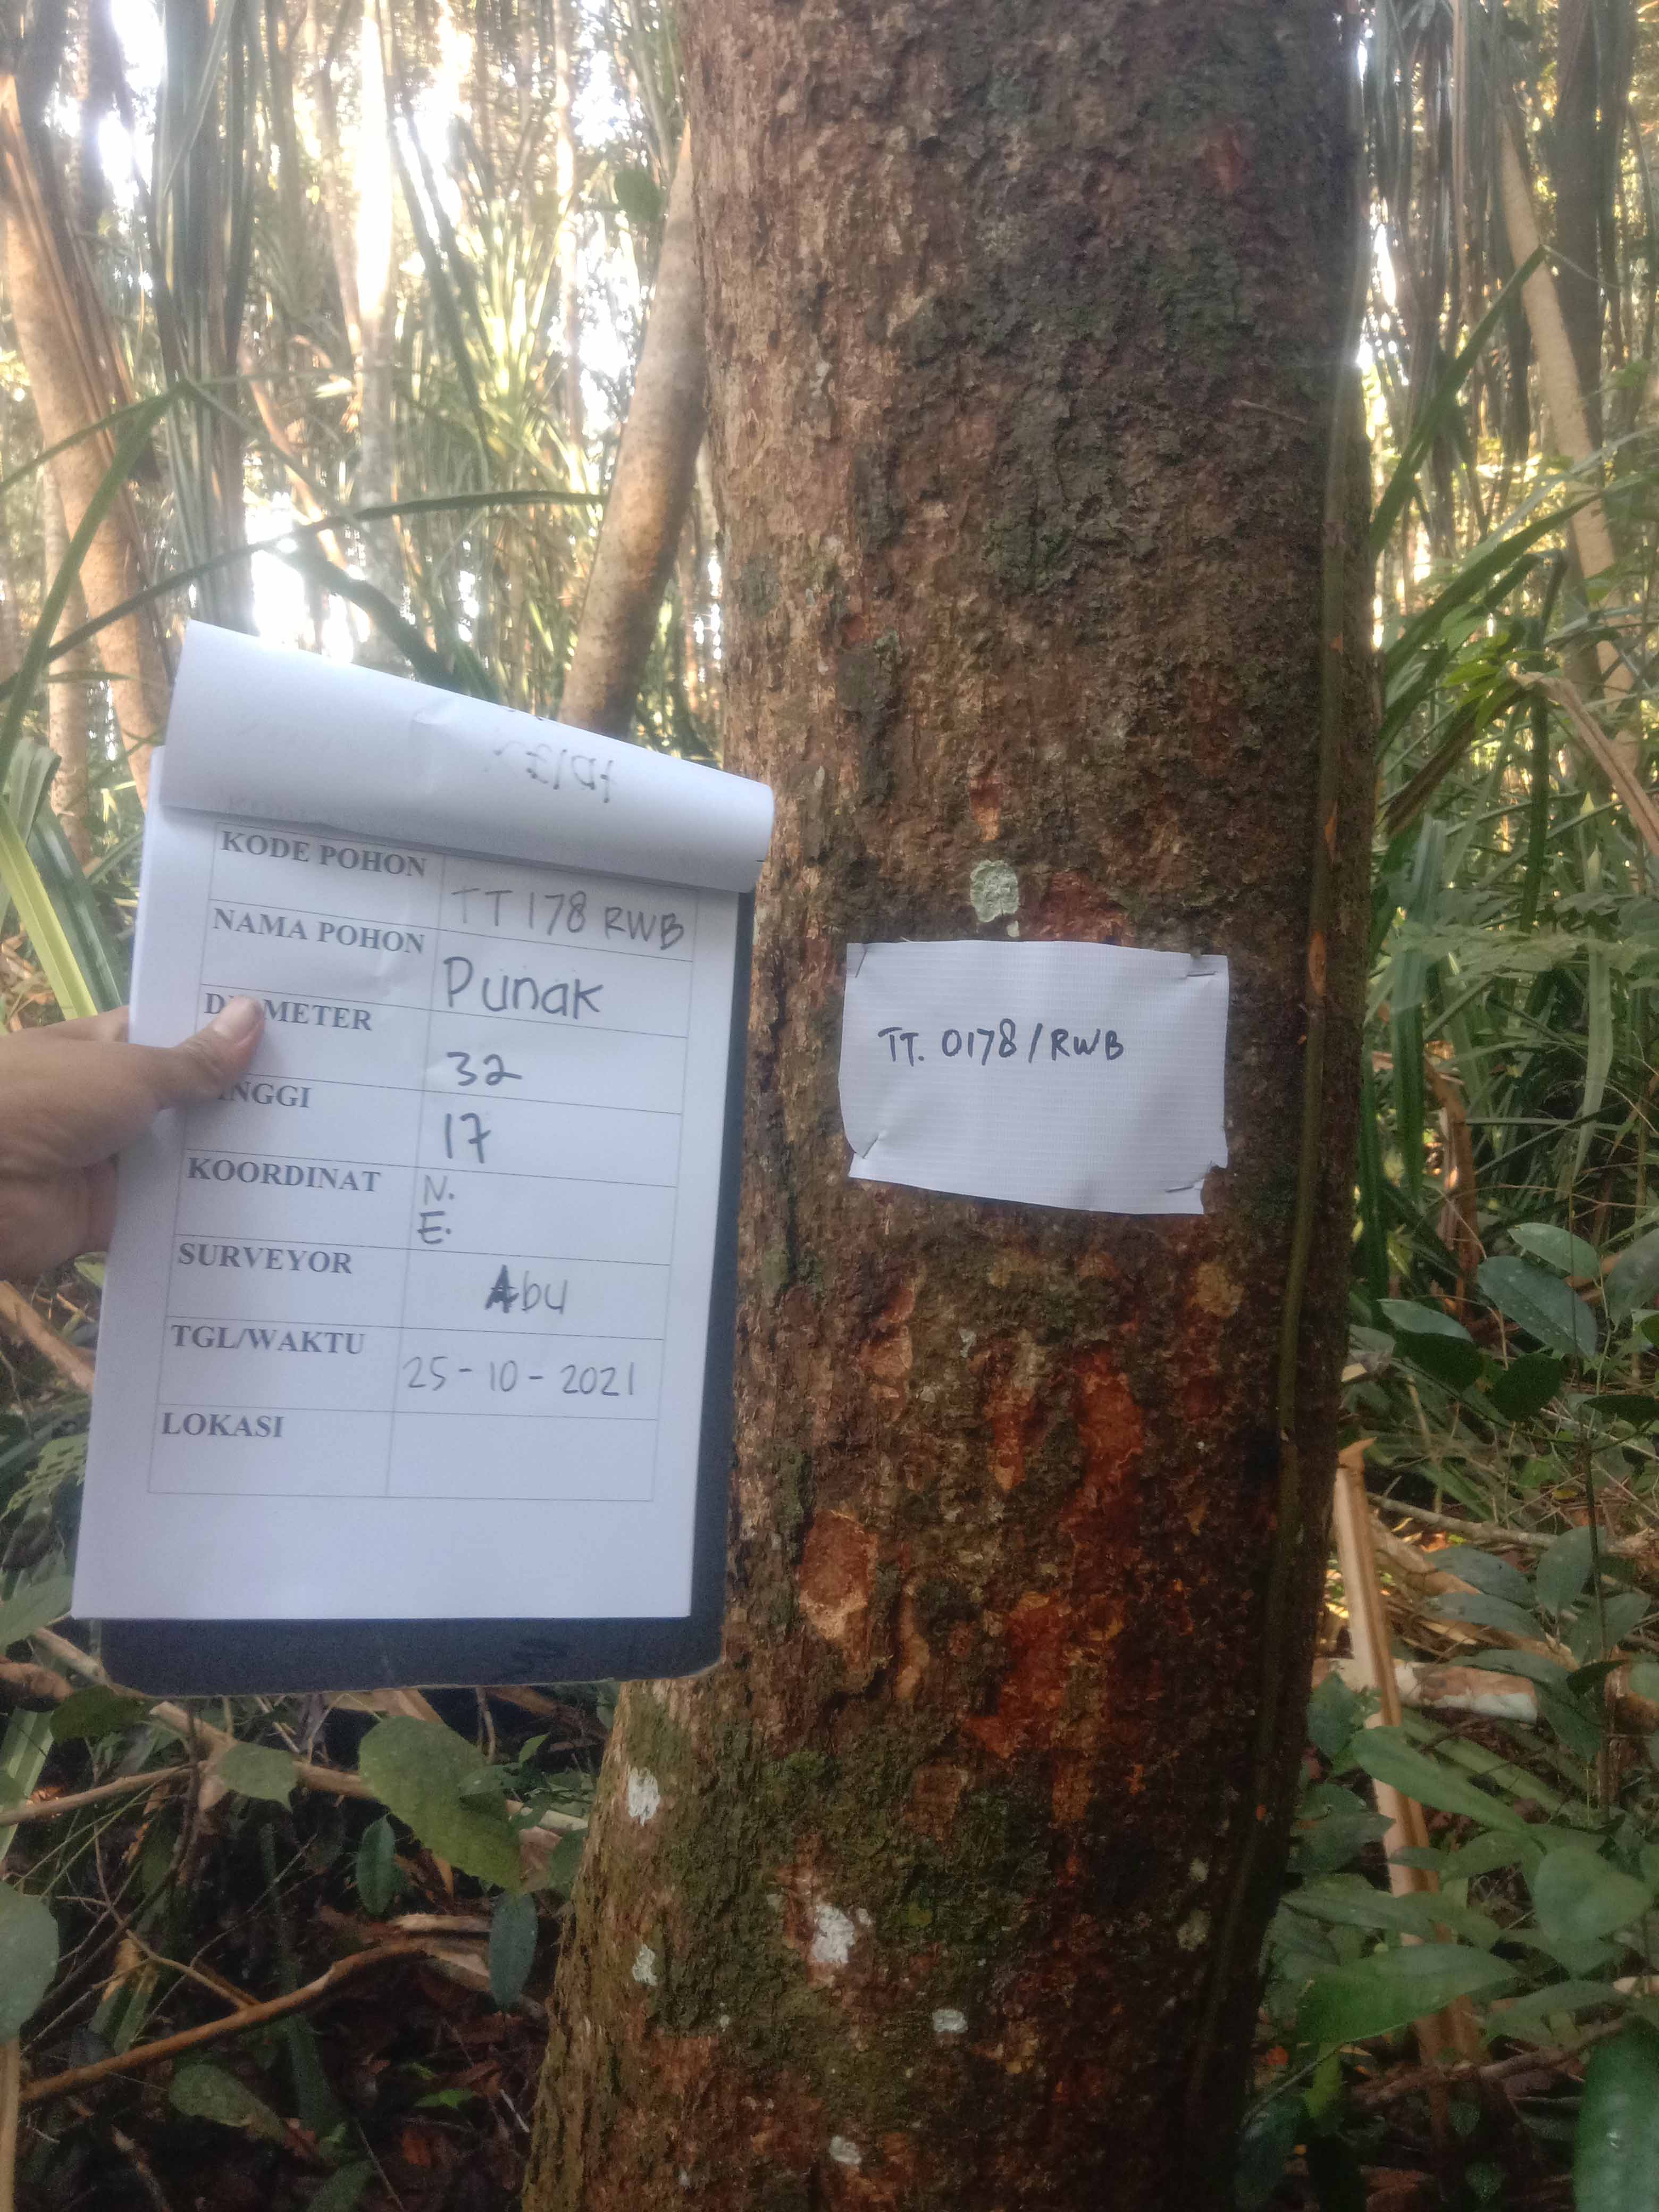 KODE POHON TT 178 RWB
NAMA POHON Punak
DIAMETER 32
TINGGI 17
KOORDINAT N.
E.
SURVEYOR Abu
TGL/WAKTU 25-10-2021
LOKASI
TT. 0178/RWB